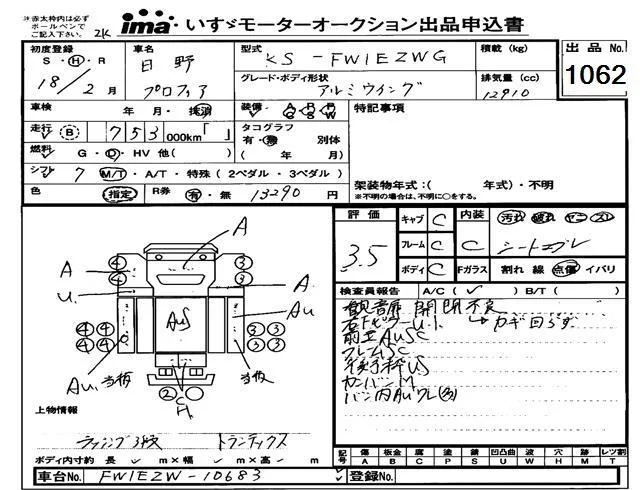 ※赤太枠内は必ず
ボールペンで
ご記入下さい。
2K
ima いすゞモーターオークション出品申込書
初度登録 車名 型式 積載 (kg) 出品 No.
S・H・R 日野 KS-FW1EZWG
18/2月 プロフィア グレード・ボディ形状 排気量 (cc) 1062
アルミウイング 12910
車検 年 月・抹消 装備 A P P 特記事項
R S W
走行 B 753 000km「 」 タコグラフ
有・無 別体
燃料 G・D・HV 他( ) ( 年 月)
シフト 7 M/T・A/T・特殊 ( 2ペダル・3ペダル ) 架装物年式:( 年式)・不明
色 指定 R券 有・無 13290 円 ※不明の場合は、不明に○をする。
評価 3.5
キャブ C 内装 汚れ 破れ ヤニ スレ
フレーム C C シートコゲレ
ボディ C Fガラス 割れ 線 点傷 イバリ
検査員報告 A/C( ✓ ) B/T( )
観音扉 開閉不良
右Fピラーu.i. → カギ回らず
前立AuSC
フレームSC
後ろ枠US
カーバンM
バン内Auワレ(多)
A A
④ ③
④ ③
A A
U Au
AuS
④④ ③③
④④ ③③
Au 当板 当板
②
C
H
上物情報
ラッシング3段 トランテックス
ボディ内寸約 長 ✓ m × 幅 ✓ m × 高 ✓ m
記号 傷 板金 腐 塗 錆 凹凸曲 波 穴 跡 レツ割
A B C P S U W H M T
車台No. FW1EZW-10683 登録No.